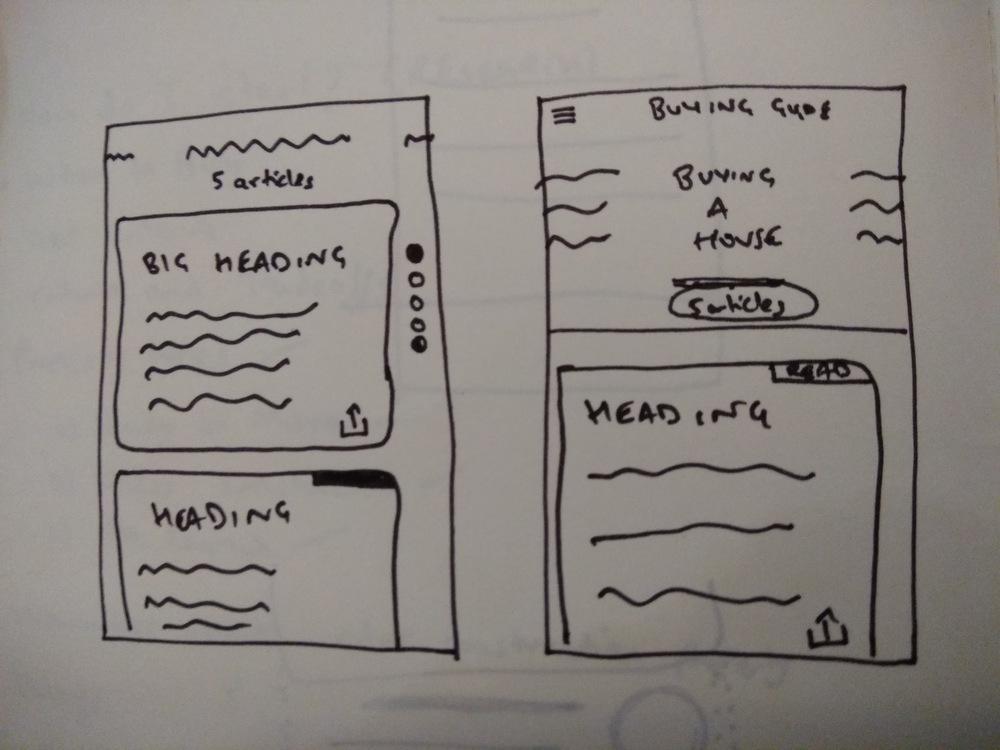 5 articles
BIG HEADING
HEADING
BUYING GUIDE
BUYING
A
HOUSE
5 articles
READ
HEADING